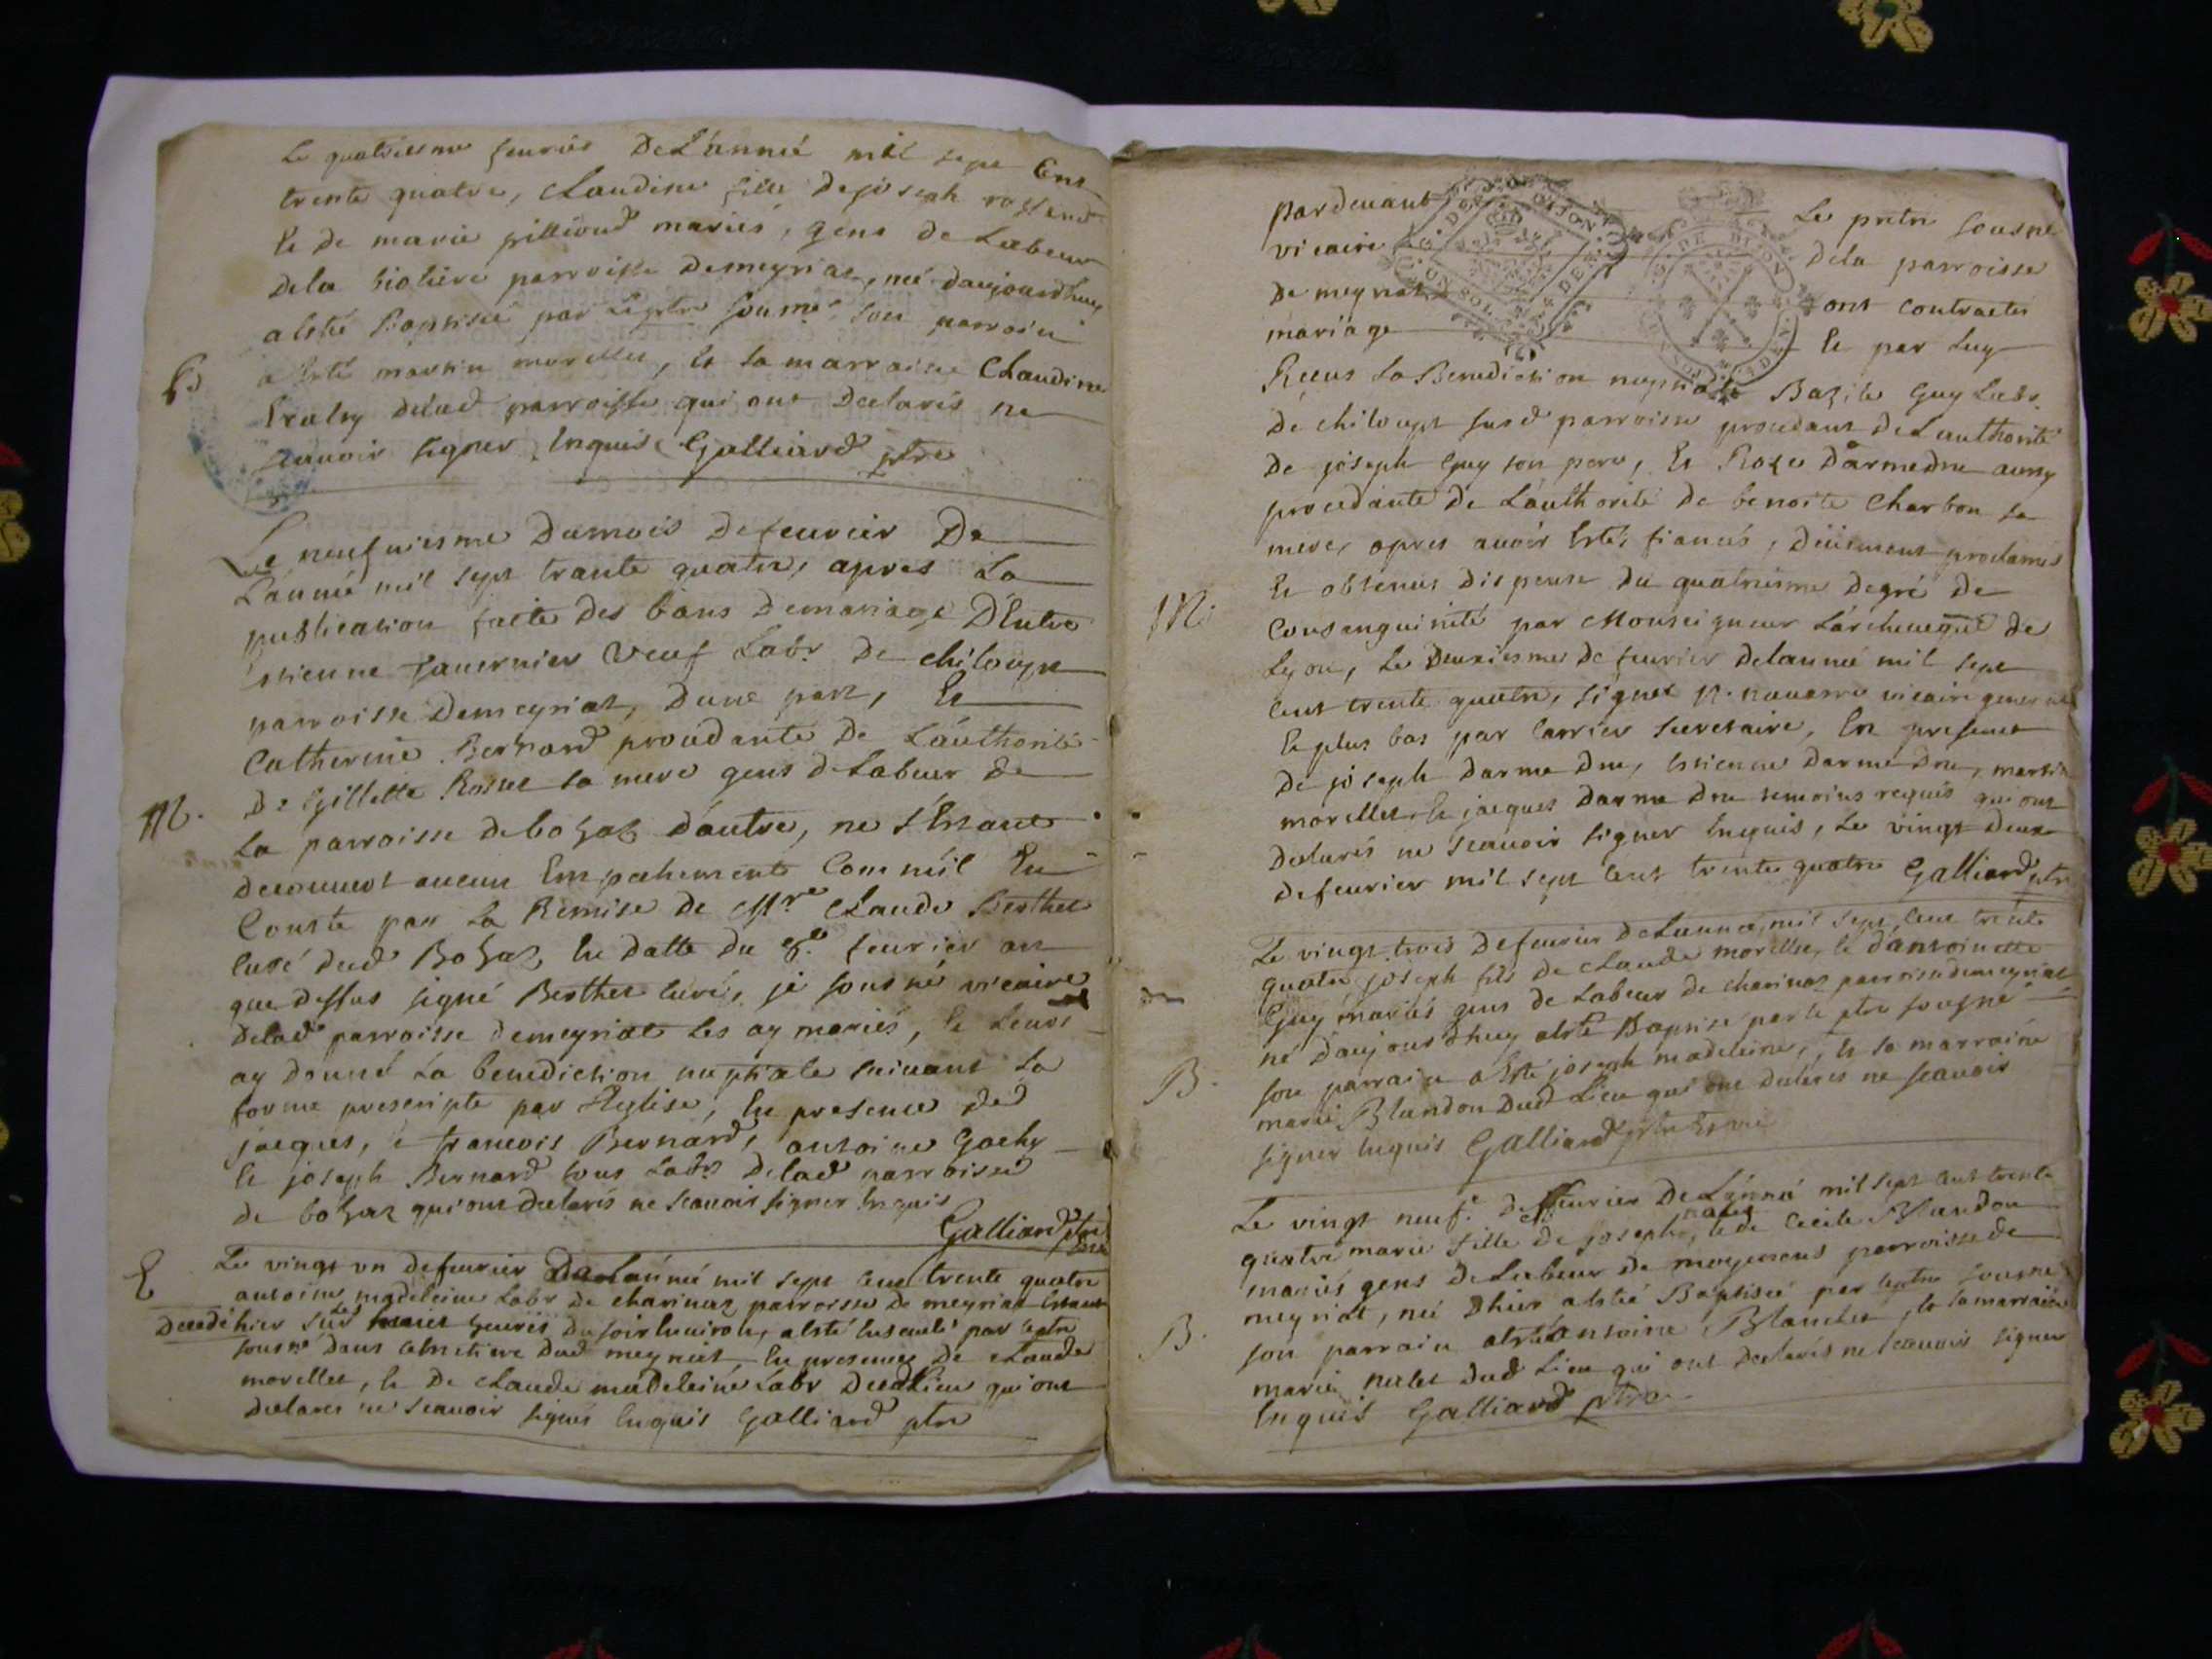 Le quatriesme feurier De L'année mil sept Cent
trente quatre, Claudine fille de joseph
Et de marie pillioud mariés, gens de Labeur
dela parroisse demeyriat, née daujourdhuy
a esté Baptisée par Leptre sousné son parrain
B
a esté martin morellet, et sa marraine Claudine
dud parroisse qui ont declarés ne
scauoir signer Enquis Galliard ptre
Le neufuiesme dumois defeurier De
L'année mil sept trante quatre, apres La
publication faite des bans demariage D'Entre
Estienne tauernier Veuf Labr De chiloupt
parroisse Demeyriat, D'une part, Et
Catherine Bernard procedante de L'authorité
M.
De Gillette Rosset sa mere gens de Labeur de
La parroisse debohaz d'autre, ne s'Estant
decouuert aucun Empechements Comm'il En
Conste par La Remise de Mre Claude Berthet
Curé dud Bohaz, En datte du 8e feurier an
que dessus signé Berthet curé, je sousné vicaire
delad parroisse demeyriat les ay mariés, Et Leurs
ay donné La benediction nuptiale suiuant La
forme prescripte par l'Eglise, En presence de
jacques, et francois Bernard, antoine
Et joseph Bernard tous Labrs delad parroisse
de bohaz qui ont declarés ne scauoir signer Enquis
Galliard ptre
E
Le vingt vn defeurier De L'année mil sept cent trente quatre
antoine madeleine Labr de charinaz parroisse de meyriat Estant
decedé hier sur Les heures du soir Enuiron, a esté Enseueli par Leptre
sousné dans Cimetiere dud meyriat, En presence de Claude
morellet, Et De claude madeleine Labr dud Lieu qui ont
declares ne scauoir signer Enquis Galliard ptre
pardeuant Le pretre sousné
vicaire dela parroisse
De meyriat ont contractés
mariage Et par Luy
Receus La Benediction nuptiale Bazile Guy Labr.
De chiloupt susd parroisse procedant de L'authorité
De joseph Guy son pere, Et Roze Darmedru aussy
procedante De L'authorité de benoite Charbon sa
mere, apres auoir Estés fiancés, deüement proclamés
M.
Et obtenus dispense du quatriesme degré de
Consanguinité par Monseigneur L'archeueque de
Lyon, Le deuxiesme de feurier delannée mil sept
Cent trente quatre, signé p. nauarre vicaire general
Et plus bas par Carrier secretaire, En presence
De joseph Darmedru, Estienne Darmedru, martin
morellet, Et jacques Darmedru temoins requis qui ont
declarés ne scauoir signer Enquis, Le vingt deux
defeurier mil sept cent trente quatre Galliard ptre
Le vingt trois defeurier deLannée mil sept cent trente
quatre joseph fils de Claude morellet, Et d'antoinette
Guy mariés gens de Labeur de charinaz parroisse demeyriat
B.
né daujourdhuy a esté Baptisé par le ptre sousné
son parrain a esté joseph madeleine, Et sa marraine
marie Blandon dud Lieu qui ont declarés ne scauoir
signer Enquis Galliard ptre
Le vingt neufe de feurier De L'année mil sept cent trente
quatre marie fille de joseph Et de Cecile Blandon
mariés gens deLabeur de parroisse de
B.
meyriat, née d'hier a esté Baptisée par Leptre sousné
son parrain a esté antoine Blanchet, Et sa marraine
marie dud Lieu qui ont declarés ne scauoir signer
Enquis Galliard ptre